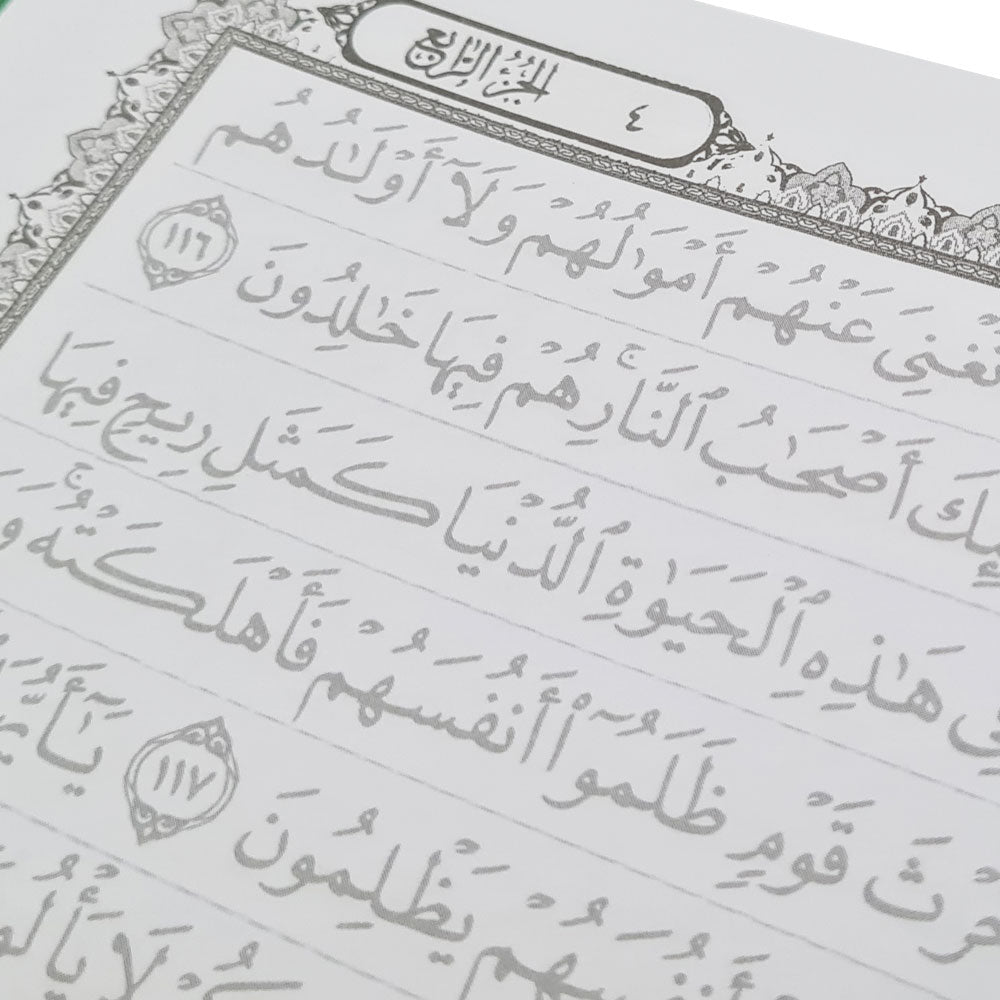 الجزء الرابع ٤
تُغْنِيَ عَنْهُمْ أَمْوَٰلُهُمْ وَلَآ أَوْلَـٰدُهُم
أَصْحَـٰبُ ٱلنَّارِ ۚ هُمْ فِيهَا خَـٰلِدُونَ ١١٦
هَـٰذِهِ ٱلْحَيَوٰةِ ٱلدُّنْيَا كَمَثَلِ رِيحٍ فِيهَا
حَرْثَ قَوْمٍ ظَلَمُوٓا۟ أَنفُسَهُمْ فَأَهْلَكَتْهُ ۚ
أَنفُسَهُمْ يَظْلِمُونَ ١١٧
لَا